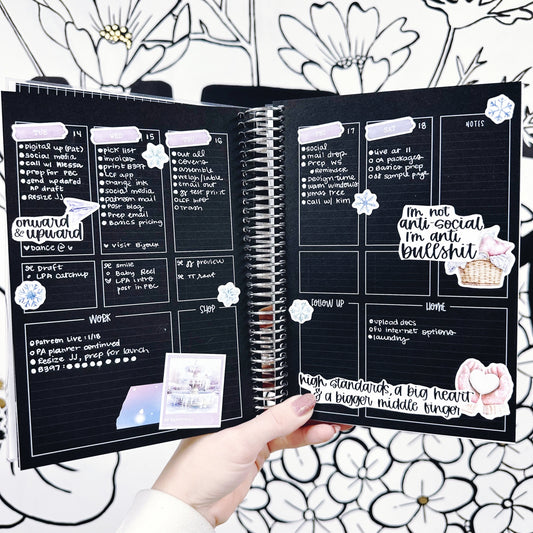 TUE 14
Digital up (Pat)
social media
call w/ Nessa
prep for PBC
send updated
NP draft
Resize JJ
onward
& upward
dance @ 6
Draft
LPA catchup
WED 15
pick list
invoices
print B397
LCF app
change ink
social media
patreon mail
Post blog
Prep email
Basics pricing
visit Bijoux
smile
Baby Reel
LPA intro
post in PBC
16
cut all
covers
assemble
weigh/lable
email out
trash
JJ preview
WORK
Patreon Live 11/18
PA planner continued
Resize JJ, prep for launch
B397:
SHOP
17
social
mail drop
Prep WS
Reminder
Design time
warm windows
xmas tree
call w/ kim
SAT 18
Live at 11
OA packages
Basics prep
DE sample page
NOTES
I'm not
anti-social
I'm anti
bullshit
FOLLOW UP
HOME
upload docs
FU internet options
laundry
high standards, a big heart
& a bigger middle finger